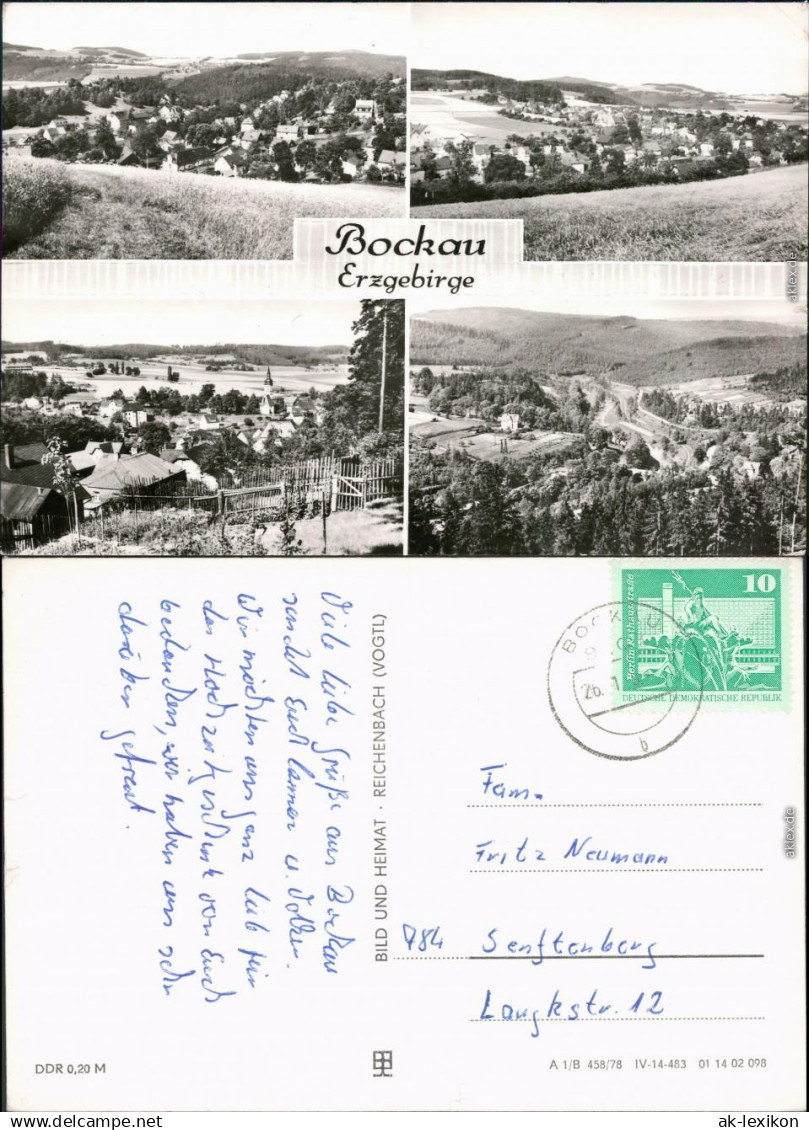 Bockau
Erzgebirge
akleix.de
Viele liebe Grüße aus Bockau
sendet Euch Carmen u. Volker.
Wir möchten uns ganz lieb für
das Hochzeitgeschenk von Euch
bedanken, wir haben uns sehr
darüber gefreut.
BILD UND HEIMAT · REICHENBACH (VOGTL)
10
Berlin, Rathausstraße
DEUTSCHE DEMOKRATISCHE REPUBLIK
BOCKAU
26.
b
Fam.
Fritz Neumann
784 Senftenberg
Langkstr. 12
DDR 0,20 M
A 1/B 458/78 IV-14-483 01 14 02 098
aklex.de
www.delcampe.net
ak-lexikon